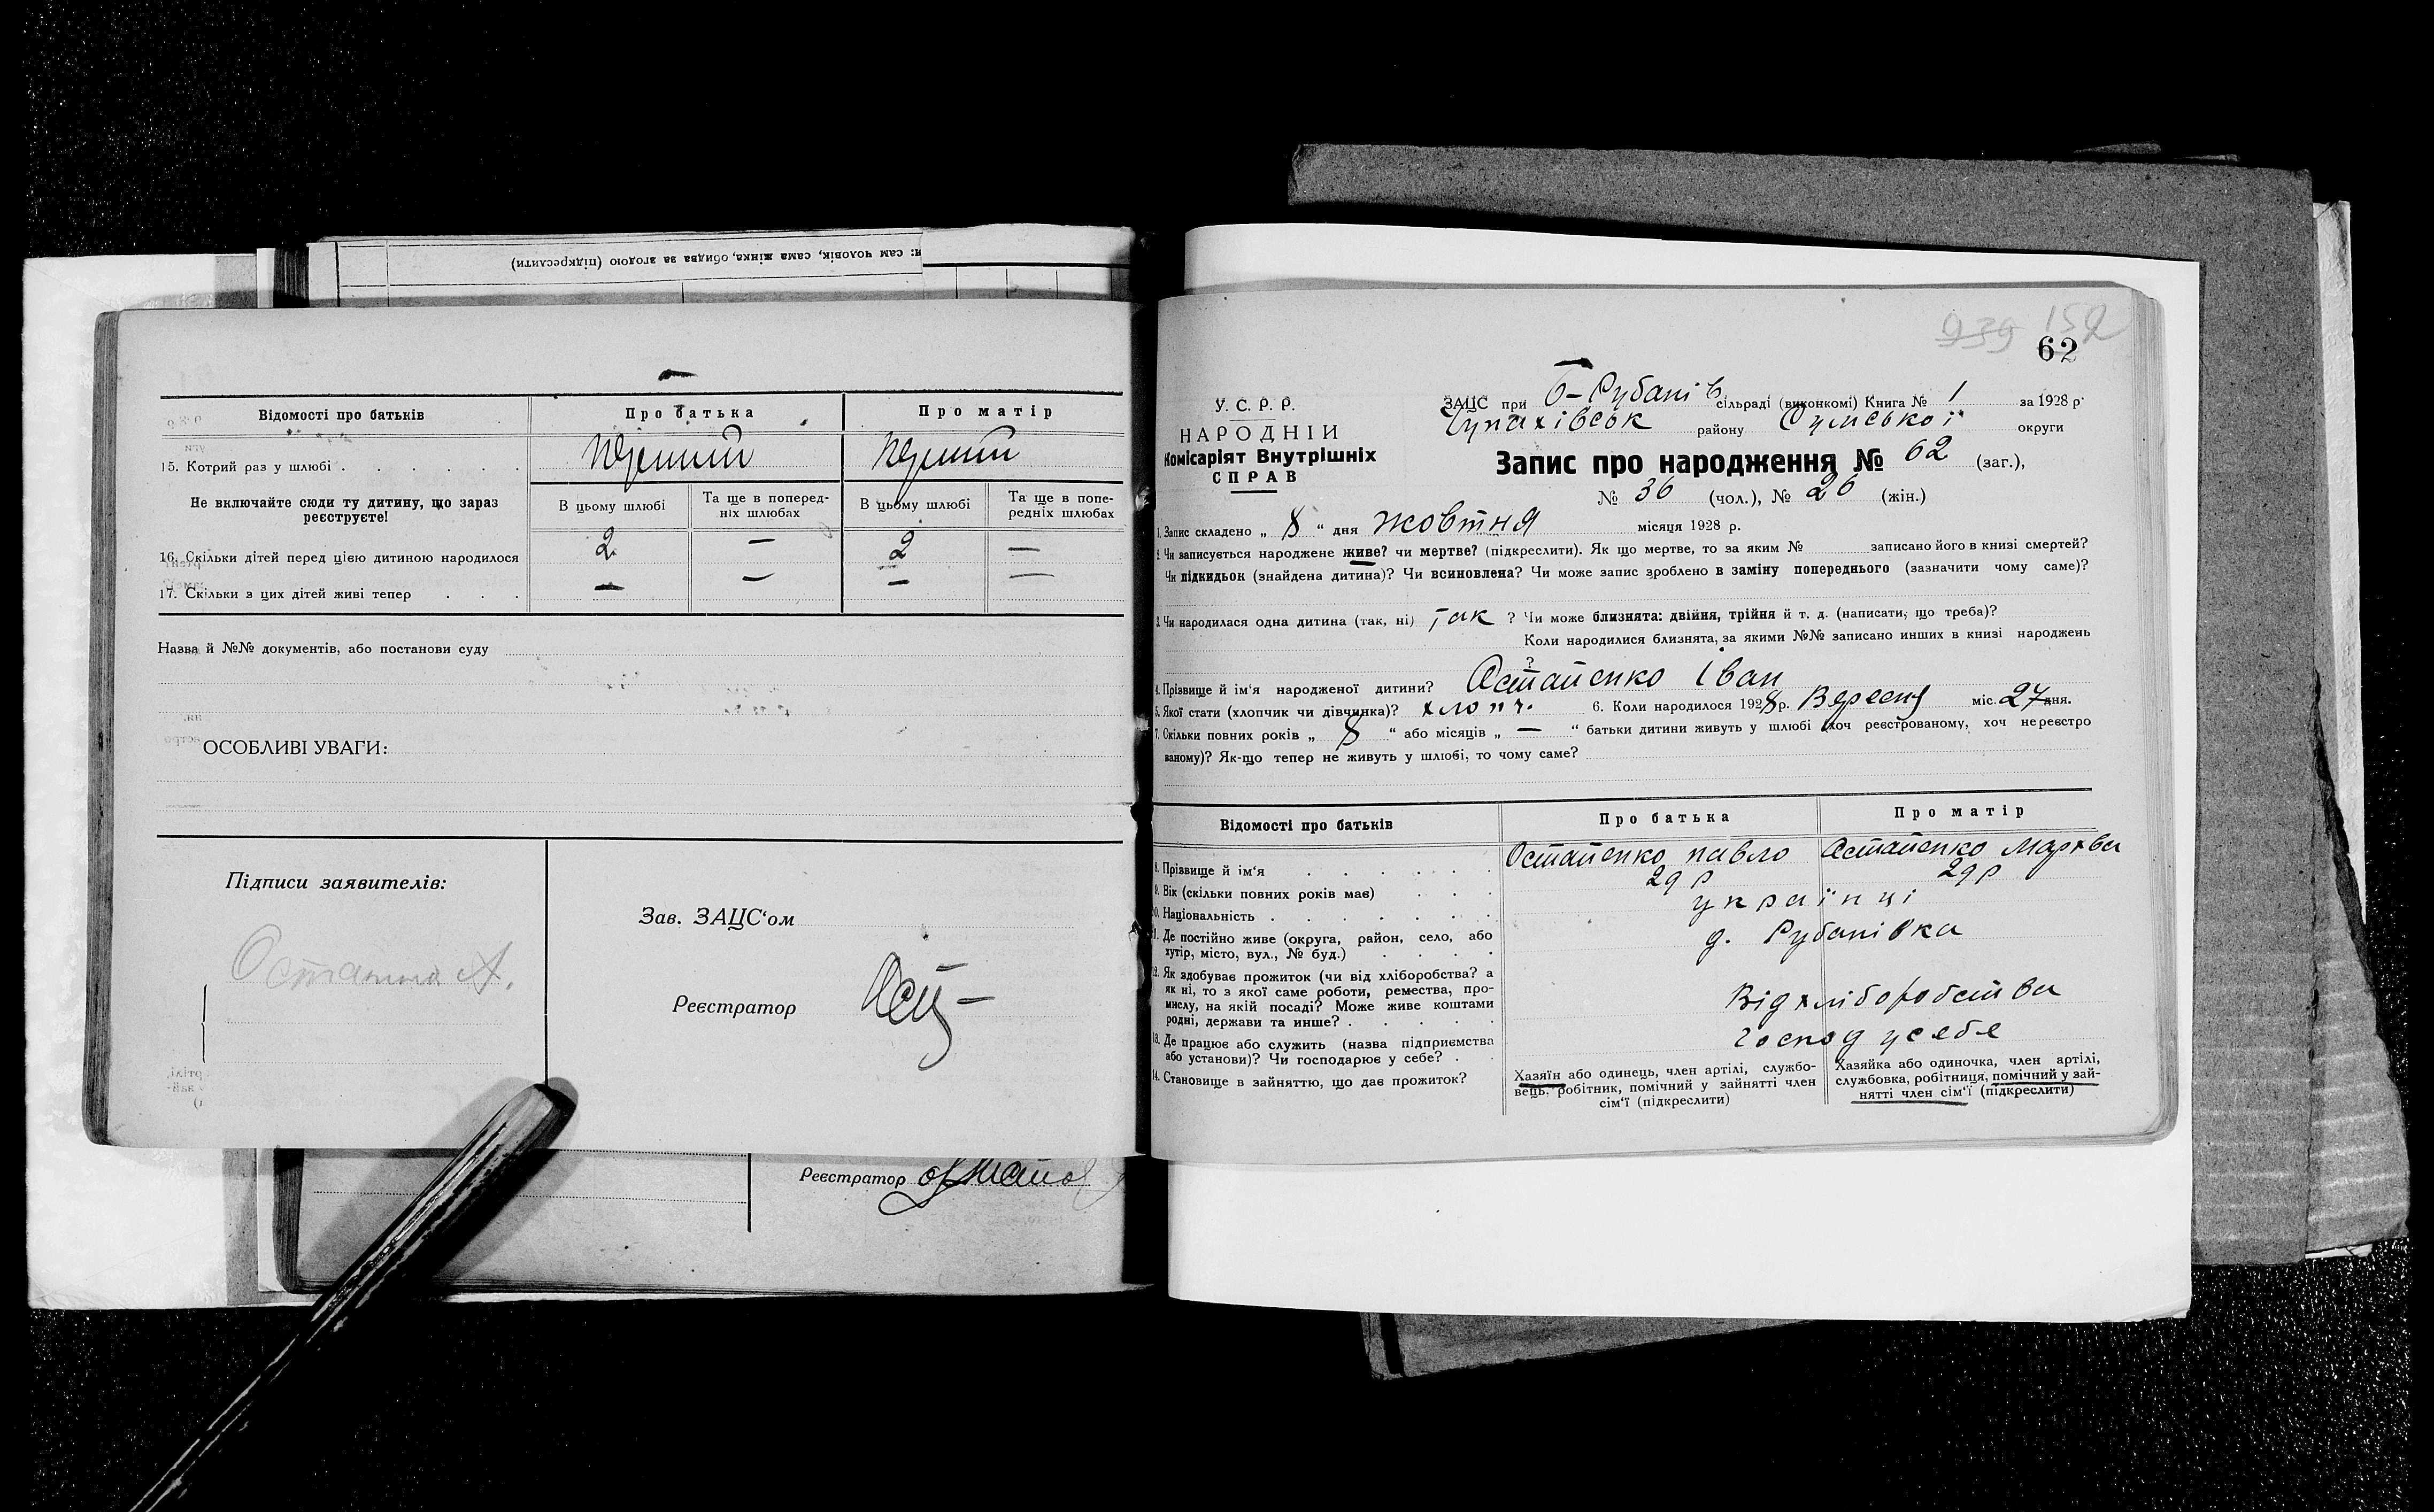 и: сам чоловік, сама жінка, обидва за згодою (підкреслити)
Відомості про батьків
Про батька
Про матір
15. Котрий раз у шлюбі . . . . . .
Не включайте сюди ту дитину, що зараз реєструєте!
В цьому шлюбі
Та ще в поперед-
ніх шлюбах
В цьому шлюбі
Та ще в попе-
редніх шлюбах
16. Скільки дітей перед цією дитиною народилося 2 — 2 —
17. Скільки з цих дітей живі тепер . . . — — — —
Назва й №№ документів, або постанови суду
ОСОБЛИВІ УВАГИ:
Підписи заявителів:
Зав. ЗАЦС'ом
Реєстратор
Реєстратор
939 152
62
У. С. Р. Р.
НАРОДНІЙ
Комісаріят Внутрішніх
СПРАВ
ЗАЦС при Б-Рубанів сільраді (виконкомі) Книга № 1 за 1928 р.
Чупахівськ району Сумської округи
Запис про народження № 62 (заг.),
№ 36 (чол.), № 26 (жін.)
1. Запис складено „ 8 “ дня жовтня місяця 1928 р.
2. Чи записується народжене живе? чи мертве? (підкреслити). Як що мертве, то за яким № записано його в книзі смертей?
Чи підкидьок (знайдена дитина)? Чи всиновлена? Чи може запис зроблено в заміну попереднього (зазначити чому саме)?
3. Чи народилася одна дитина (так, ні) так ? Чи може близнята: двійня, трійня й т. д. (написати, що треба)?
Коли народилися близнята, за якими №№ записано инших в книзі народжень
?
4. Прізвище й ім'я народженої дитини? Остапенко Іван
5. Якої стати (хлопчик чи дівчинка)? хлопч. 6. Коли народилося 1928 р. Вересня міс. 27 дня.
7. Скільки повних років „ 8 “ або місяців „ — “ батьки дитини живуть у шлюбі (хоч реєстрованому, хоч нереєстро
ваному)? Як-що тепер не живуть у шлюбі, то чому саме?
Відомості про батьків
Про батька
Про матір
8. Прізвище й ім'я . . . . . . Остапенко павло Остапенко Мархва
9. Вік (скільки повних років має) . . . 29 р 29 р
10. Національність . . . . . . . українці
11. Де постійно живе (округа, район, село, або
хутір, місто, вул., № буд.) . . . . д. Рубанівка
12. Як здобуває прожиток (чи від хліборобства? а
як ні, то з якої саме роботи, ремества, про-
мислу, на якій посаді? Може живе коштами
родні, держави та инше? . . . . . Від хліборобства
13. Де працює або служить (назва підприємства
або установи)? Чи господарює у себе? . . Господ у себе
14. Становище в зайняттю, що дає прожиток?
Хазяїн або одинець, член артілі, службо-
вець, робітник, помічний у зайнятті член
сім'ї (підкреслити)
Хазяйка або одиночка, член артілі,
службовка, робітниця, помічний у зай-
нятті член сім'ї (підкреслити)